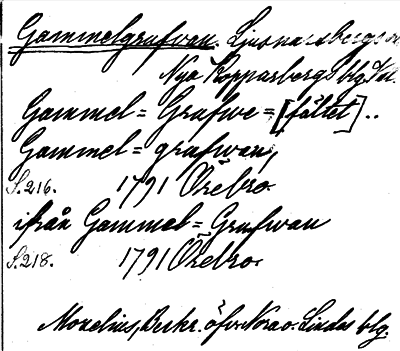 Gammelgrufvan. Ljusnarsbergs
Nya Kopparbergs blg. Vm.
Gammel=Grufwe=[fältet]..
Gammel=grufwan,
S. 216. 1791 Örebro.
ifrån Gammel=Grufwan
S. 218. 1791 Örebro.
Moxelius, Beskr. öfv. Nora o. Lindes blg.